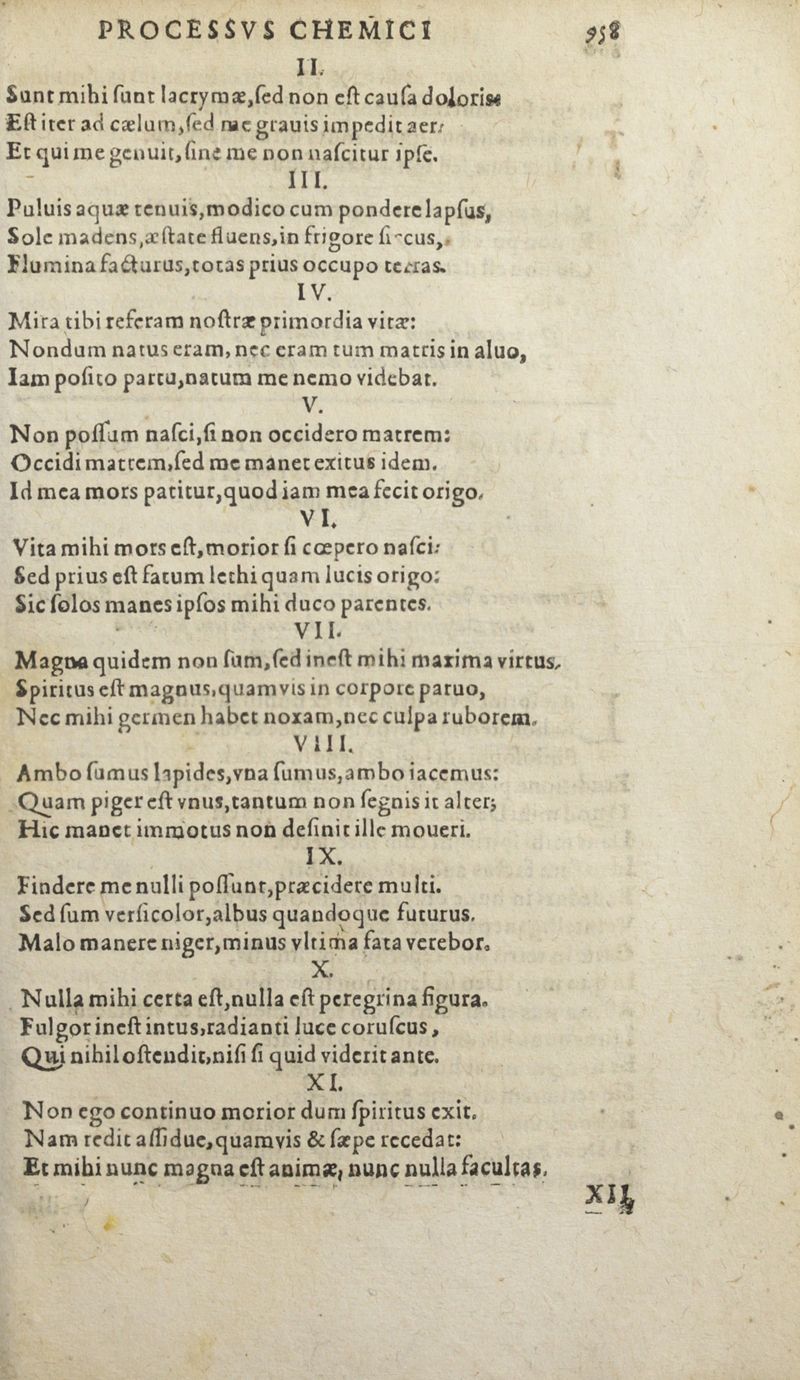 PROCESSVS CHEMICI 958
II.
Sunt mihi ſunt lacrymæ,ſed non eſt cauſa doloris
Eſt iter ad cælum,ſed me grauis impedit aer:
Et qui me genuit,ſine me non naſcitur ipſe.
III.
Puluis aquæ tenuis,modico cum pondere lapſus,
Sole madens,æſtate fluens,in frigore ſiccus,
Flumina facturus,totas prius occupo terras.
IV.
Mira tibi referam noſtræ primordia vitæ:
Nondum natus eram, nec eram tum matris in aluo,
Iam poſito partu,natum me nemo videbat.
V.
Non poſſum naſci,ſi non occidero matrem:
Occidi matrem,ſed me manet exitus idem.
Id mea mors patitur,quod iam mea fecit origo.
VI.
Vita mihi mors eſt,morior ſi cœpero naſci:
Sed prius eſt fatum lethi quam lucis origo:
Sic ſolos manes ipſos mihi duco parentes.
VII.
Magna quidem non ſum,ſed ineſt mihi maxima virtus.
Spiritus eſt magnus,quamvis in corpore paruo,
Nec mihi germen habet noxam,nec culpa ruborem.
VIII.
Ambo ſumus lapides,vna ſumus,ambo iacemus:
Quam piger eſt vnus,tantum non ſegnis it alter;
Hic manet immotus non deſinit ille moueri.
IX.
Findere me nulli poſſunt,præcidere multi.
Sed ſum verſicolor,albus quandoque futurus.
Malo manere niger,minus vltima fata verebor.
X.
Nulla mihi certa eſt,nulla eſt peregrina figura.
Fulgor ineſt intus,radianti luce coruſcus,
Qui nihil oſtendit,niſi ſi quid viderit ante.
XI.
Non ego continuo morior dum ſpiritus exit.
Nam redit aſſidue,quamvis & ſæpe recedat:
Et mihi nunc magna eſt animæ, nunc nulla facultas.
XII.